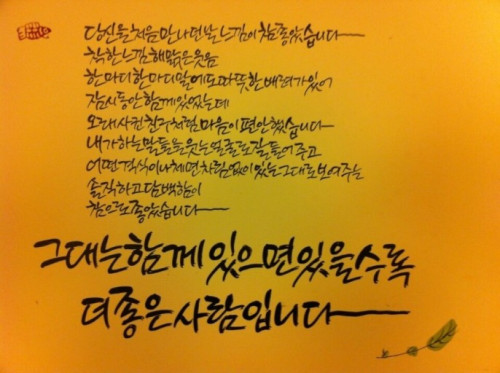 당신을 처음 만나던 날 느낌이 참 좋았습니다
착한 느낌 해맑은 웃음
한마디 한마디 말에도 따뜻한 배려가 있어
잠시동안 함께 있었는데
오래 사귄 친구처럼 마음이 편안했습니다
내가 하는 말들을 웃는 얼굴로 잘 들어주고
어떤 격식이나 체면 차림 없이 있는 그대로 보여주는
솔직하고 담백함이
참으로 좋았습니다
그대는 함께 있으면 있을수록
더 좋은 사람입니다